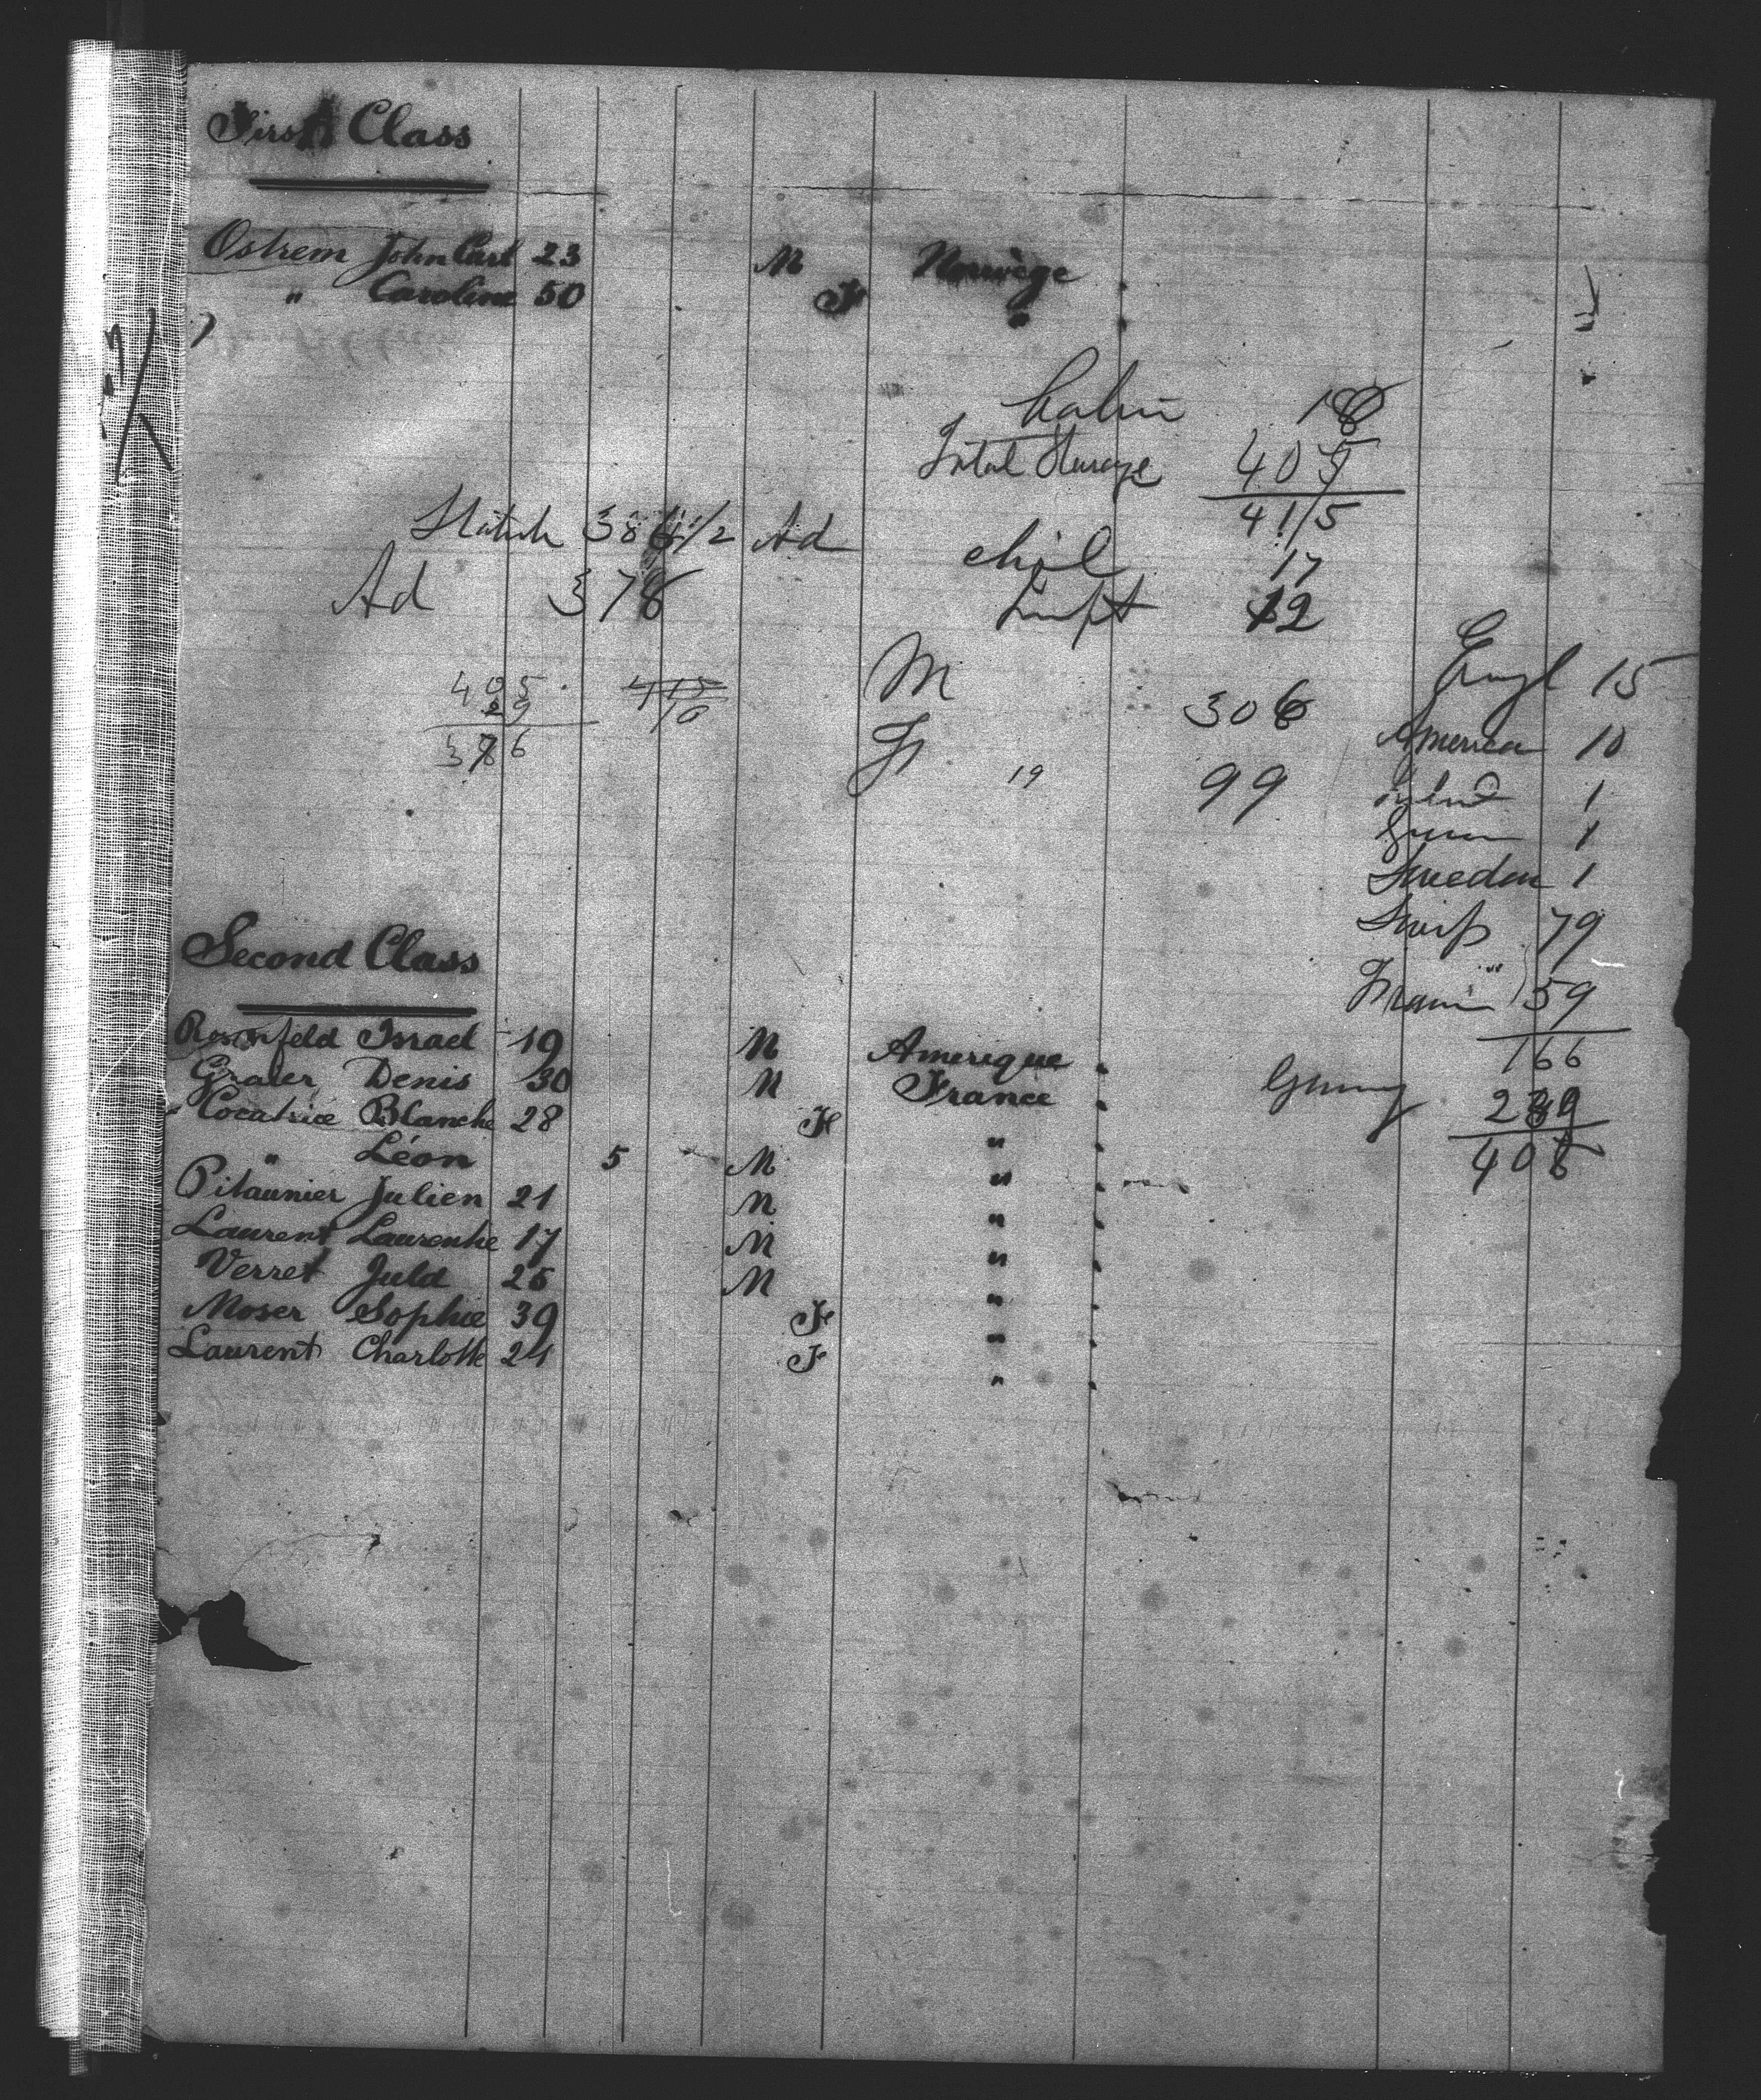 First Class
Ostrem John Carl 23 M Norwège
" Caroline 50 F "
Cabin 18
Total Steerage 405
415
Statute 386 1/2 Ad
chil 17
Ad 378
Inft 12
M 306
F 19 99
405 415
29 10
376
Engl 15
American 10
1
1
Sweden 1
Swiss 79
France 59
166
Germy 239
405
Second Class
Rosenfeld Israel 19 M Amérique
Graler Denis 30 M France
" Cocatrice Blanche 28 F "
" Léon 5 M "
Pitaunier Julien 21 M "
Laurent Laurenhe 17 M "
Verret Juld 25 M "
Moser Sophie 39 F "
Laurent Charlotte 24 F "